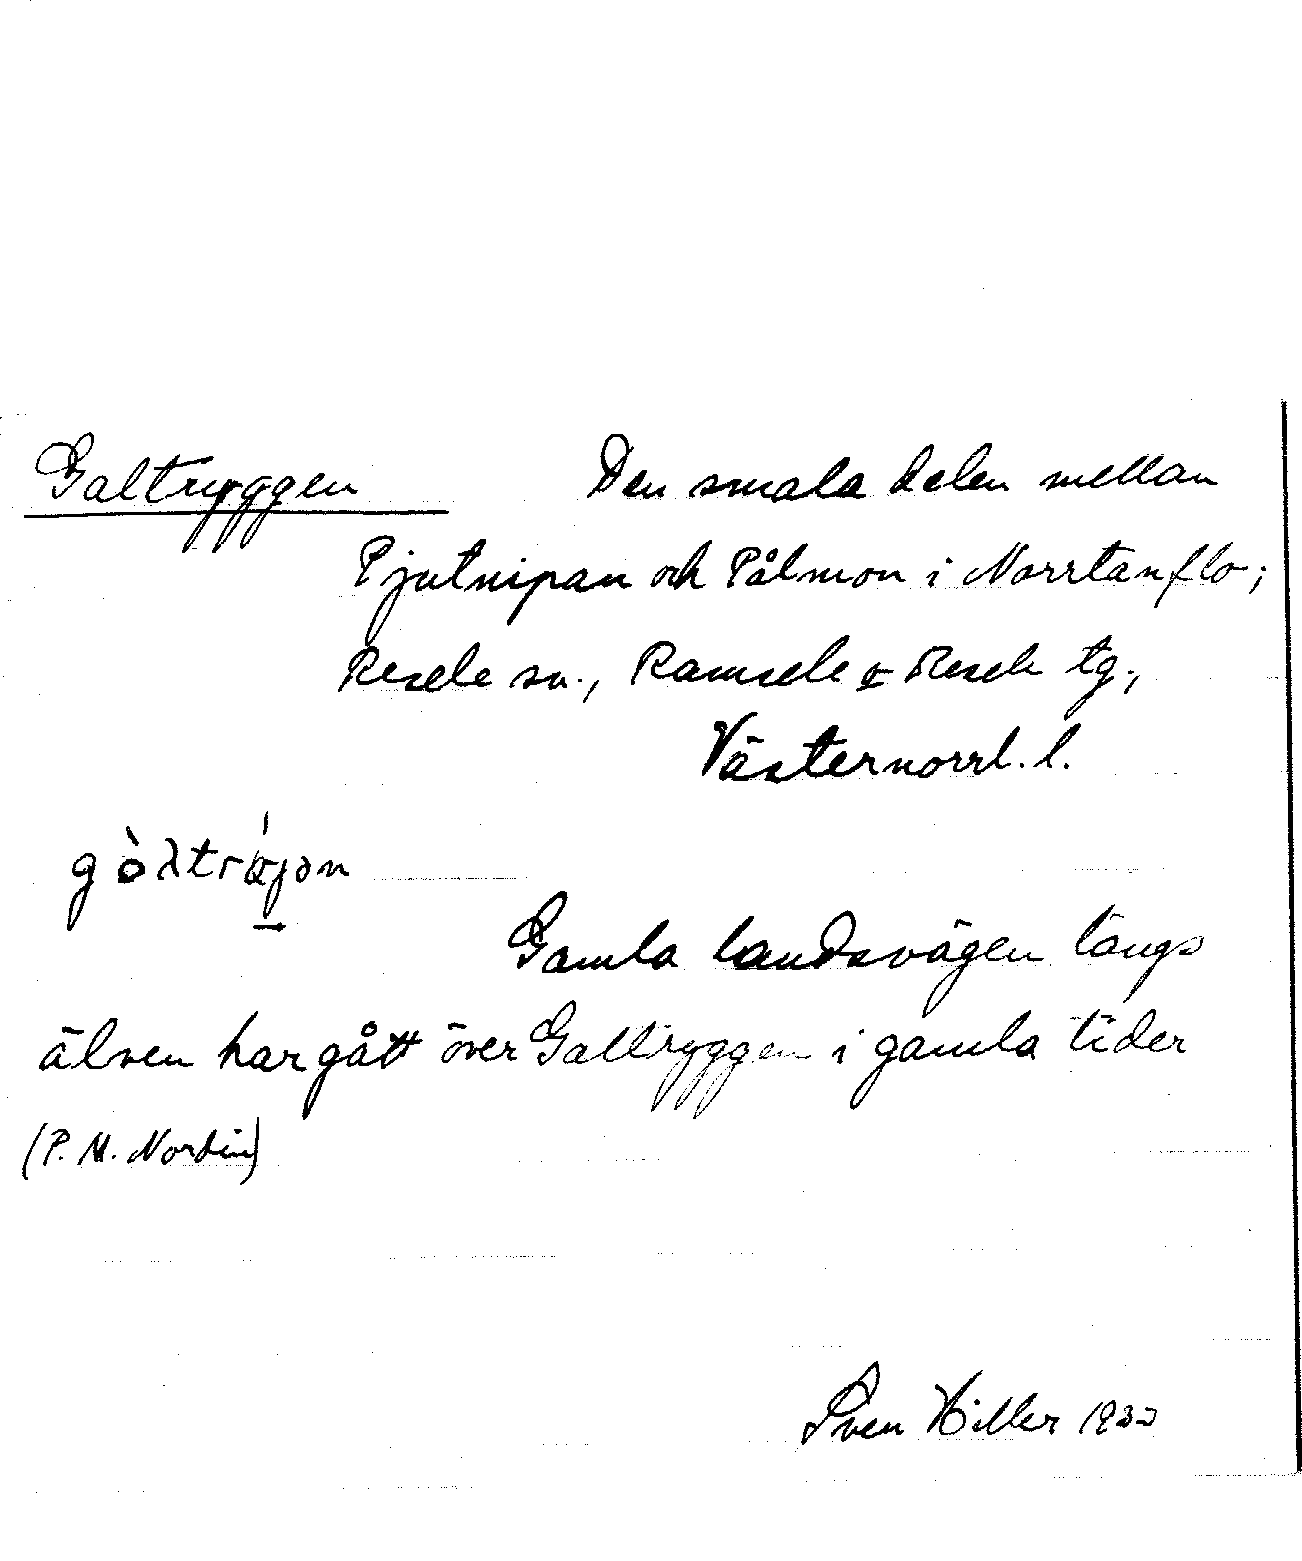 Galtryggen Den smala delen mellan
Pjutnipan och Pålmon i Norrtanflo;
Resele sn., Ramsele & Resele tg.,
Västernorrl. l.
Gamla landsvägen längs
älven har gått över Galtryggen i gamla tider
(P. M. Nordin)
Sven Hiller